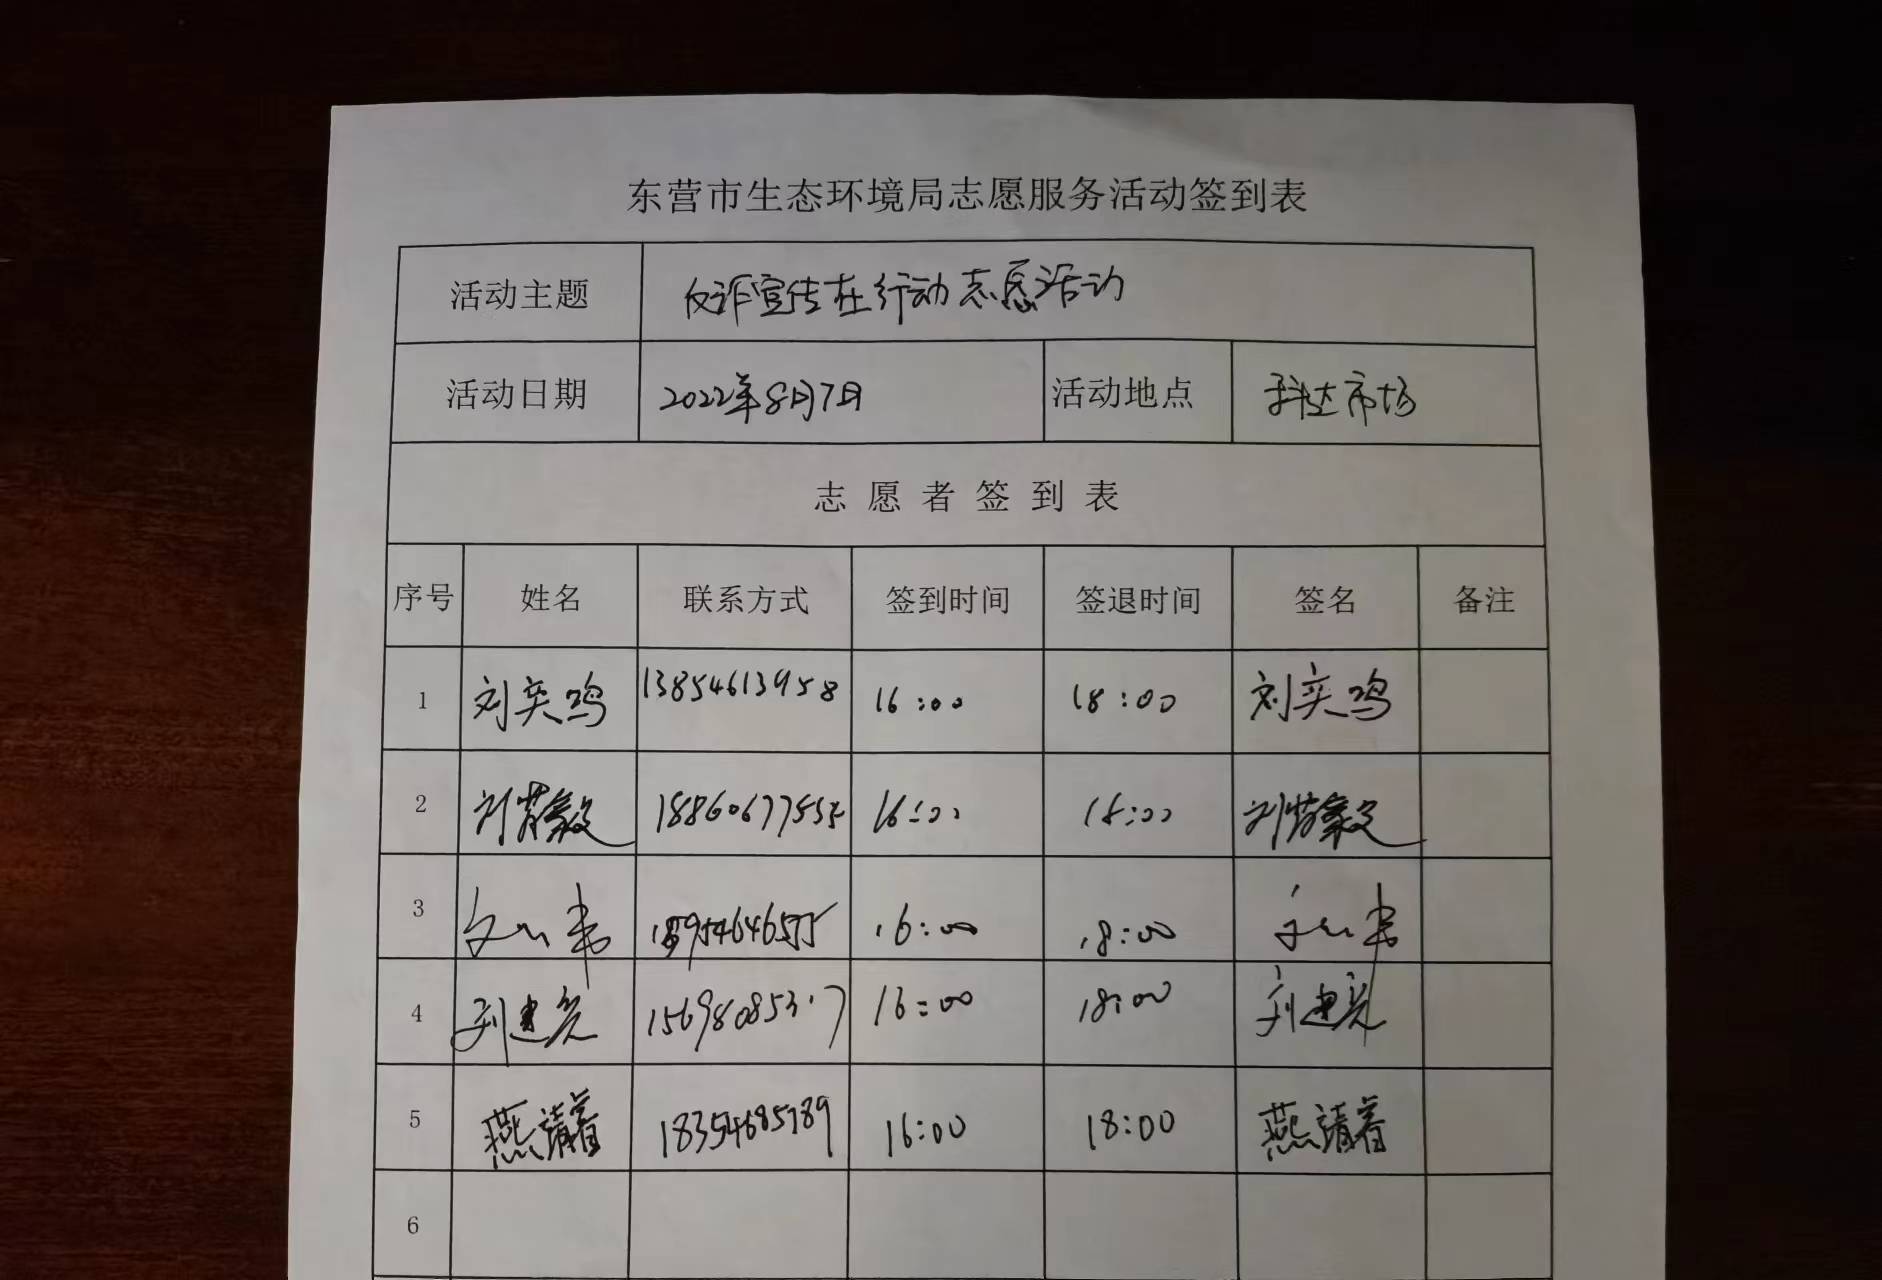 东营市生态环境局志愿服务活动签到表
活动主题 反诈宣传在行动志愿活动
活动日期 2022年8月7日 活动地点 科达市场
志愿者签到表
序号 姓名 联系方式 签到时间 签退时间 签名 备注
1 刘奕鸣 13854613958 16:00 18:00 刘奕鸣
2 16:00 18:00
3 16:00 18:00
4 刘建亮 16:00 18:00 刘建亮
5 18354685789 16:00 18:00
6